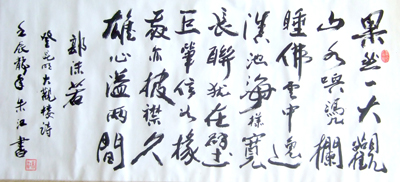 果然一大觀
山水喚憑欄
睡佛雲中逸
滇池海樣寬
長聯猶在壁
巨筆信如椽
我亦披襟久
雄心溢兩間
郭沫若
登昆明大觀樓詩
壬辰龍年朱江書